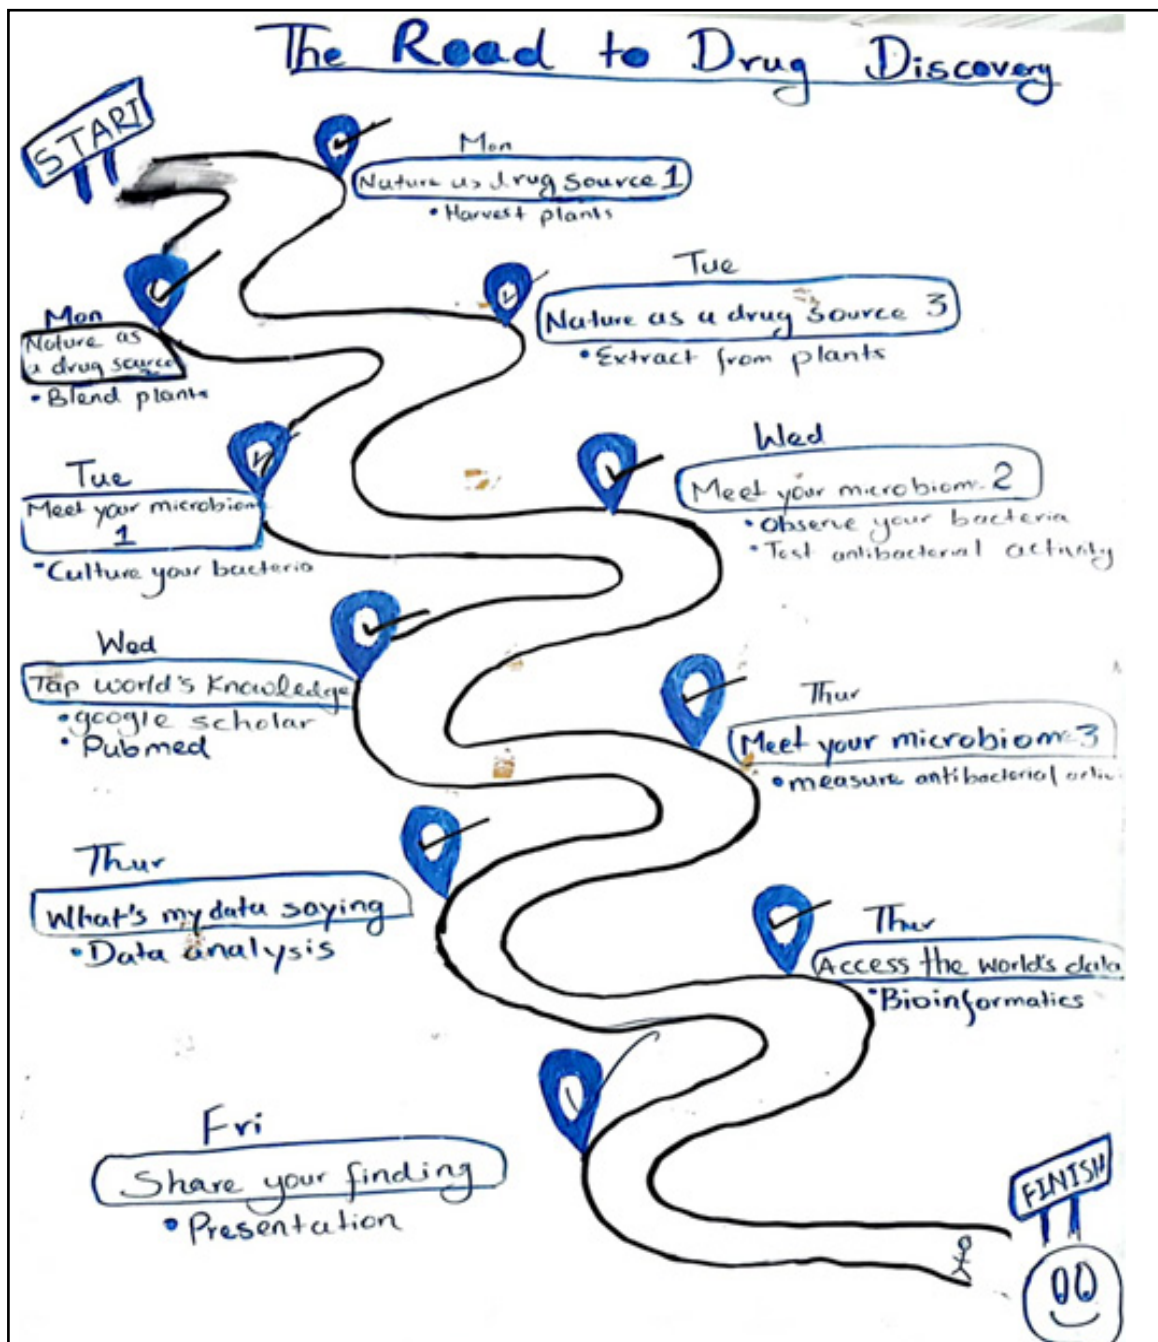 The Road to Drug Discovery
START
Mon
Nature as drug source 1
• Harvest plants
Mon
Nature as
a drug source
• Blend plants
Tue
Nature as a drug source 3
• Extract from plants
Tue
Meet your microbiom
1
• Culture your bacteria
Wed
Meet your microbiome 2
• Observe your bacteria
• Test antibacterial activity
Wed
Tap world's Knowledge
• google scholar
• Pubmed
Thur
Meet your microbiome 3
• measure antibacterial activ
Thur
What's my data saying
• Data analysis
Thur
Access the world's data
• Bioinformatics
Fri
Share your finding
• Presentation
FINISH